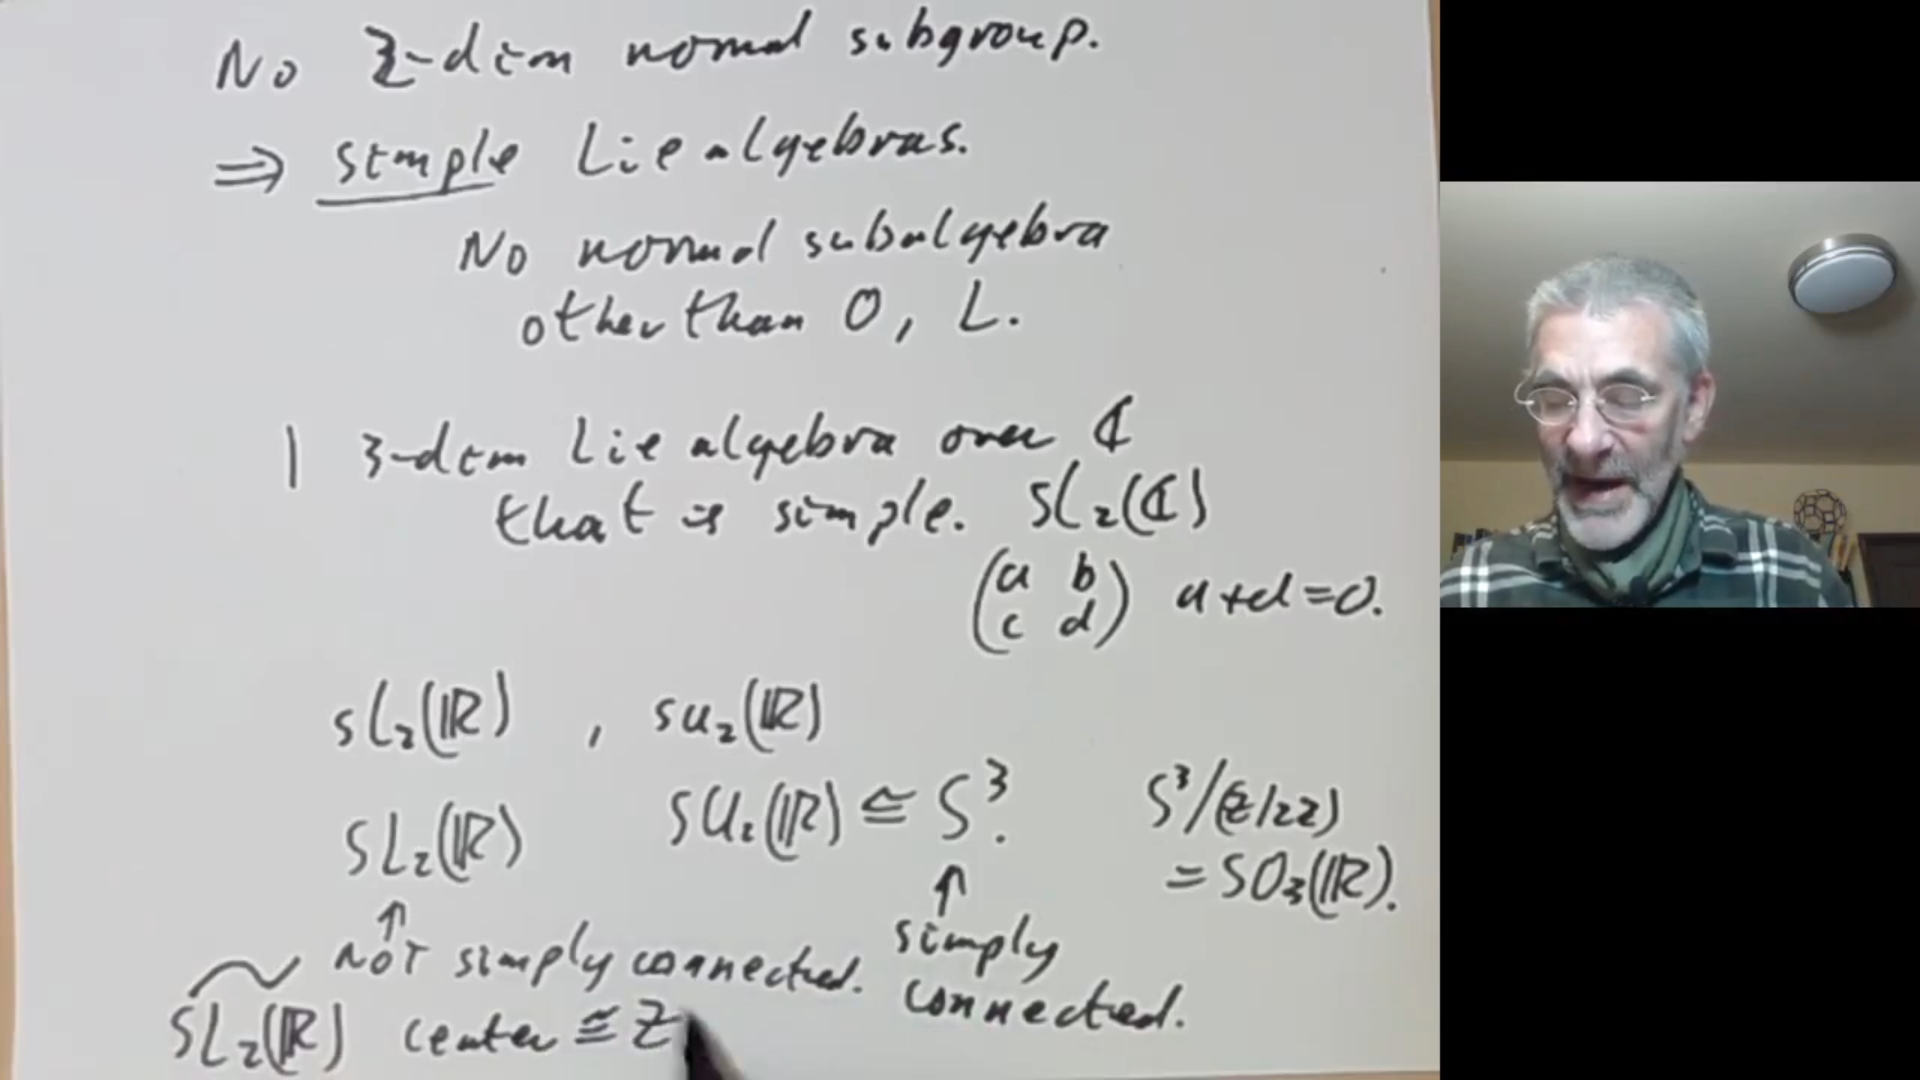 No 2-dim normal subgroup.
⇒ simple Lie algebras.
No normal subalgebra
other than 0, L.
1 3-dim Lie algebra over ℂ
that is simple. SL₂(ℂ)
(a b
c d) a+d=0.
sl₂(ℝ) , su₂(ℝ)
SL₂(ℝ) SU₂(ℝ) ≅ S³. S³/(Z/2Z)
↑ ↑ = SO₃(ℝ).
NOT simply connected. simply
connected.
S͠L₂(ℝ) center ≅ Z